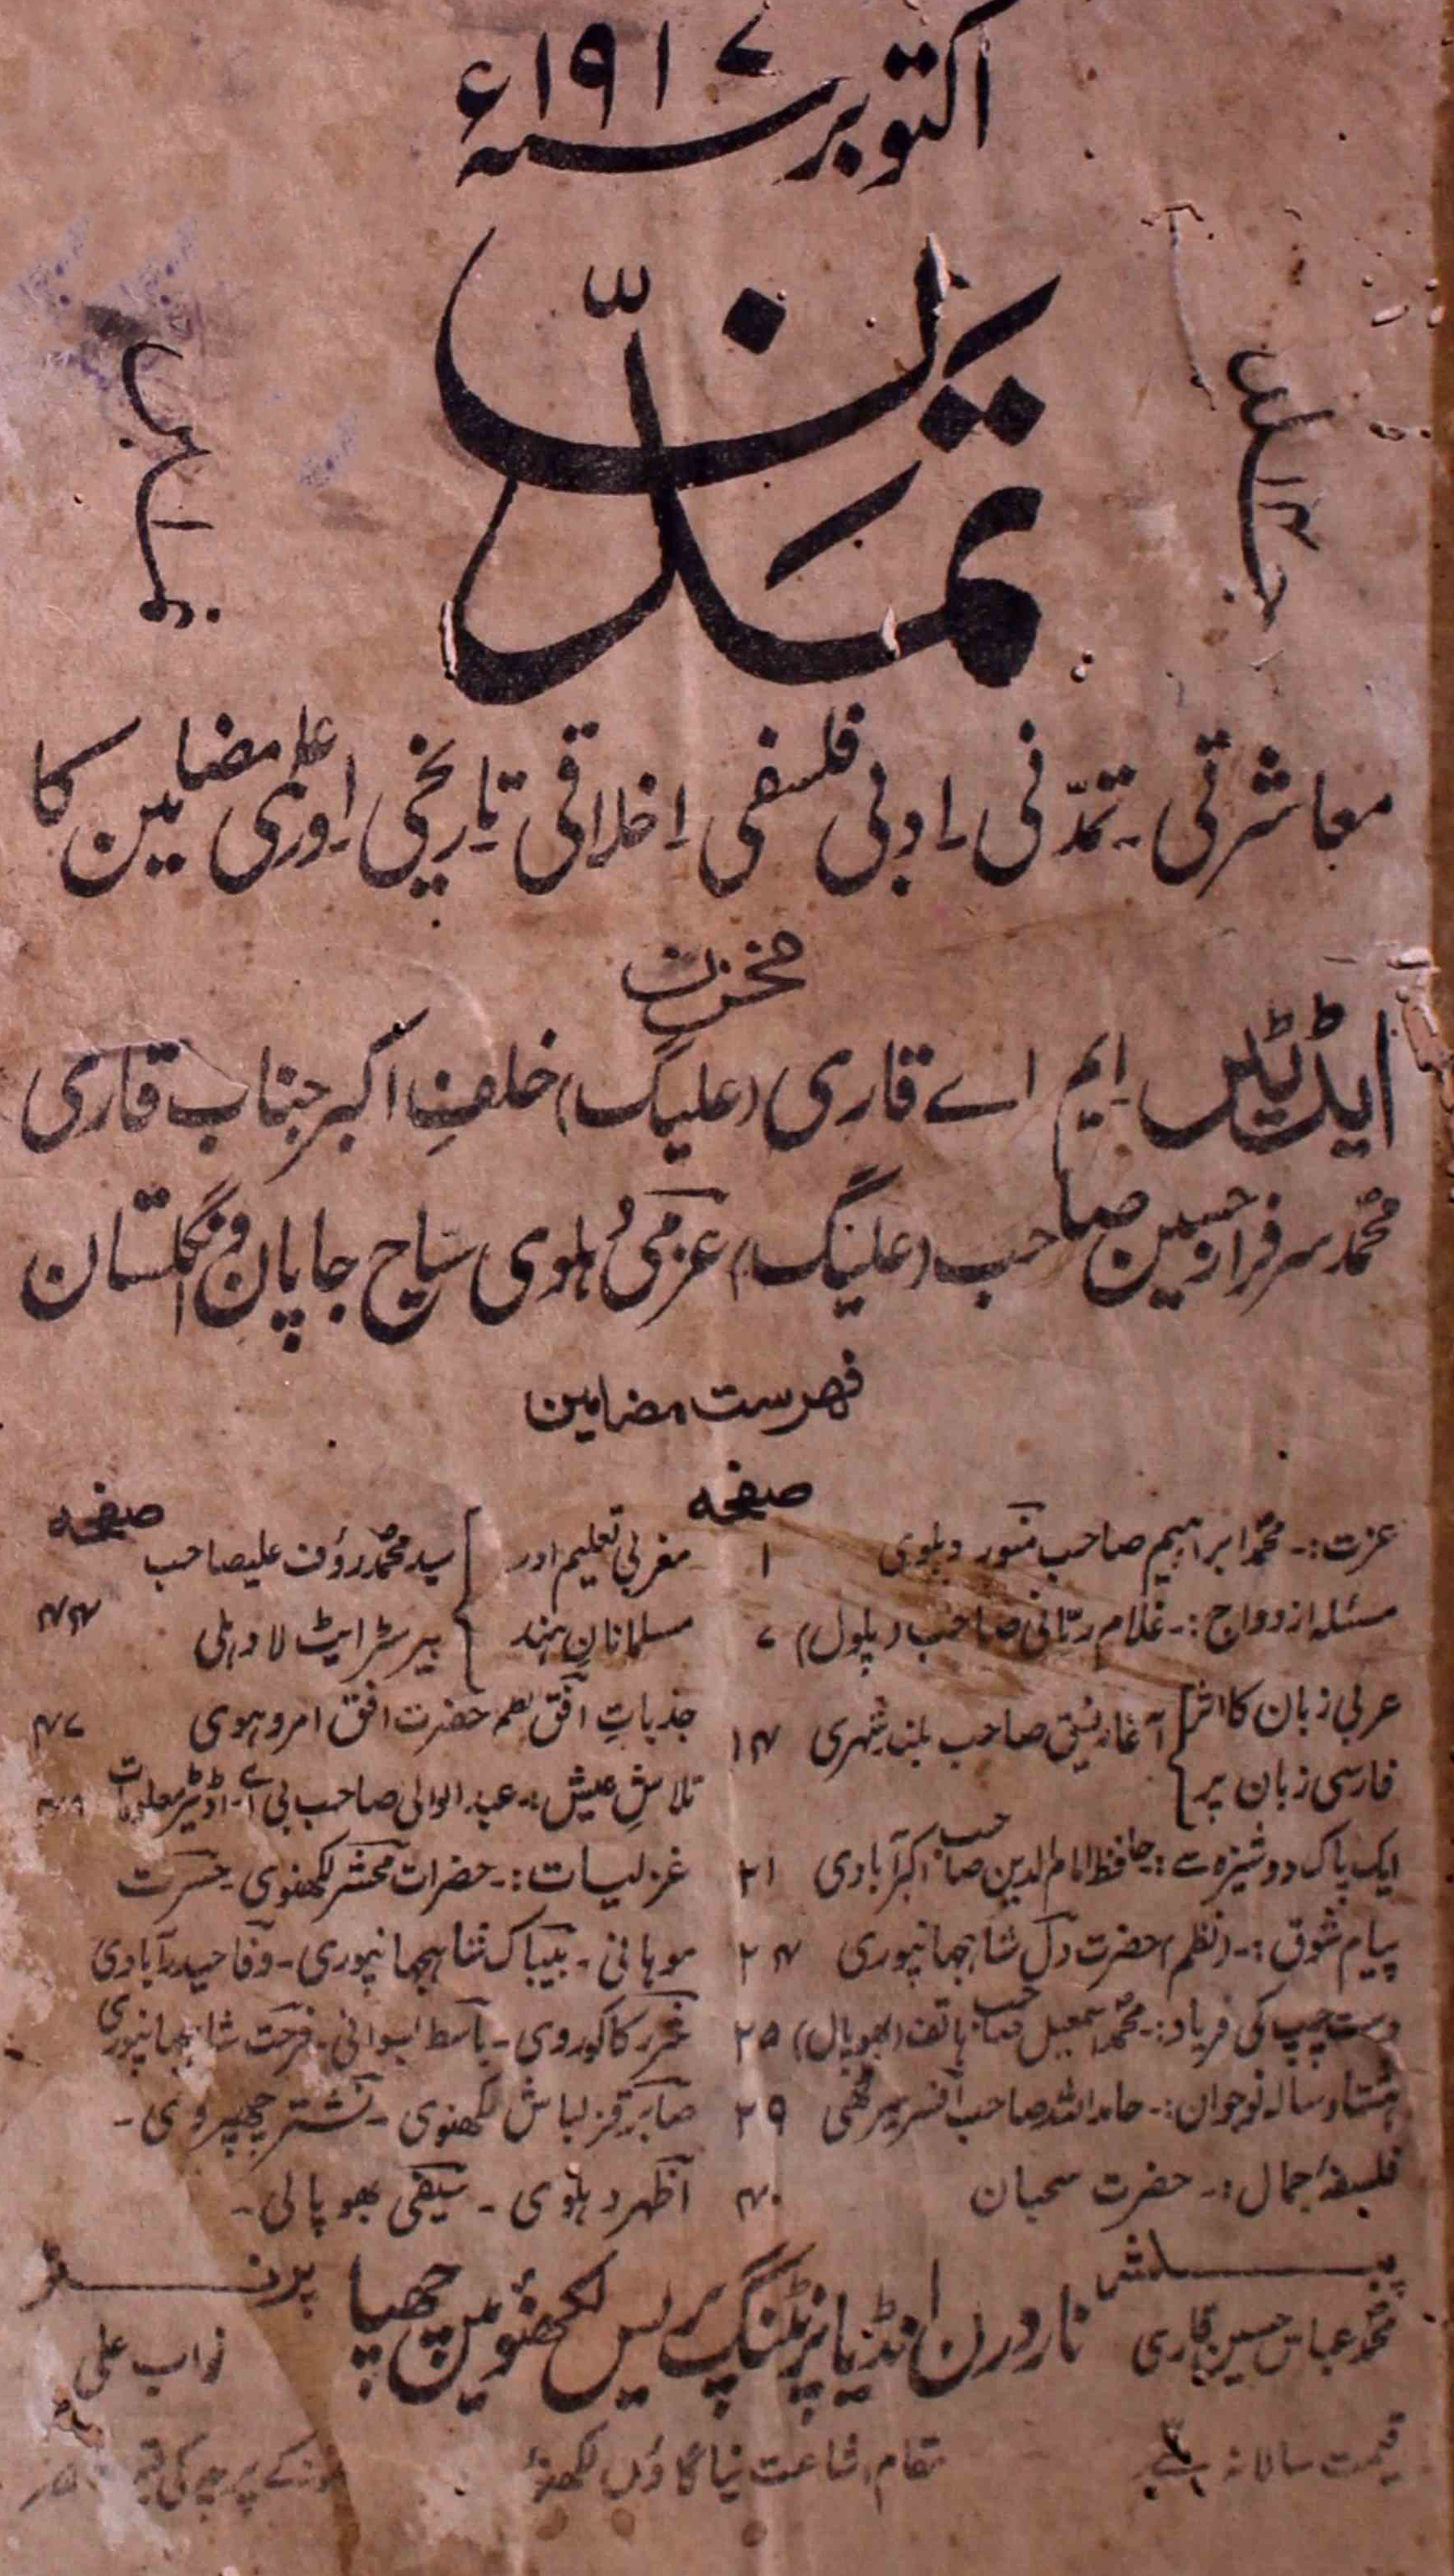 اکتوبر سنہ ۱۹۱۷ء
تمدّن
معاشرتی ۔ تمدّنی ۔ ادبی فلسفی اخلاقی تاریخی اور علمی مضامین کا
مخزن
ایڈیٹر ایم اے قاری (علیگ) خلفِ اکبر جناب قاری
محمّد سرفراز حسین صاحب (علیگ) عزمی دہلوی سیّاح جاپان و انگلستان
فہرست مضامین
صفحہ
عزت :۔ محمّد ابراہیم صاحب منور دہلوی ۱
مسئلہ ازدواج :۔ غلام ربّانی صاحب (پلول) ۷
عربی زبان کا اثر
فارسی زبان پر
آغا رفیق صاحب بلند شہری ۱۴
ایک پاک دوشیزہ سے :۔ حافظ امام الدین صاحب اکبرآبادی ۲۱
پیام شوق :۔ (نظم) حضرت دل شاہجہانپوری ۲۴
دست چپ کی فریاد :۔ محمّد اسمٰعیل صاحب ہاتف (بھوپال) ۲۵
ہشتاد سالہ نوجوان :۔ حامد اللہ صاحب افسر میرٹھی ۲۹
فلسفۂ جمال :۔ حضرت سحبان ۴۰
صفحہ
مغربی تعلیم اور
مسلمانان ہند
سید محمّد رؤف علیصاحب
بیرسٹر ایٹ لا دہلی ۴۴
جذباتِ افق نظم حضرت افق امروہوی ۴۷
تلاشِ عیش :۔ عبد الوالی صاحب بی اے۔ اڈیٹر معلومات
غزلیات :۔ حضرات محشر لکھنوی ۔ حسرت
موہانی ۔ بیباک شاہجہانپوری ۔ وفا حیدرآبادی
غرر کاکوروی ۔ باسط بسوانی ۔ فرحت شاہجہانپوری
صابر قزلباش لکھنوی ۔ نشتر چھپروی ۔
اظہر دہلوی ۔ سیفی بھوپالی ۔
پبلشر
محمّد عباس حسین قاری
نادرن انڈیا پرنٹنگ پریس لکھنؤ میں چھپا
پرنٹر
نواب علی
قیمت سالانہ
مقام اشاعت نیا گاؤں لکھنؤ
کے پرچہ کی